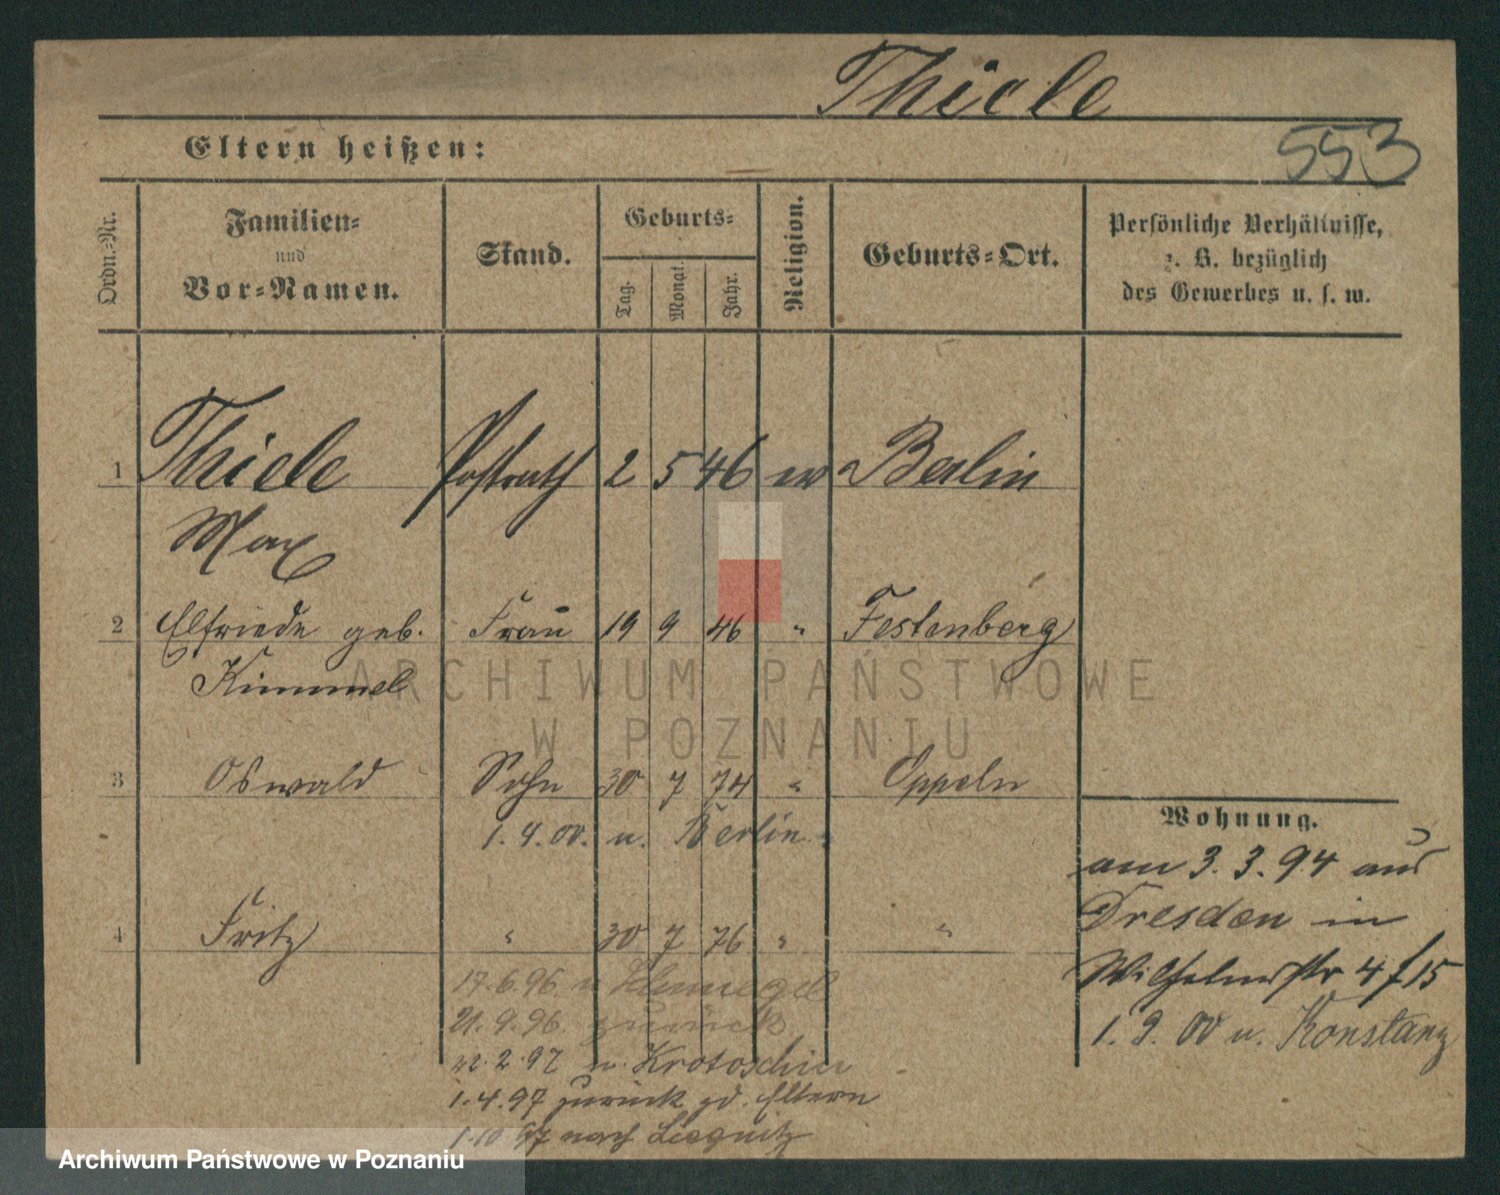 Thiele
553
Eltern heißen:
Ordn.-Nr.
Familien-
und
Vor-Namen.
Stand.
Geburts-
Tag.
Monat.
Jahr.
Religion.
Geburts-Ort.
Persönliche Verhältnisse,
z. B. bezüglich
des Gewerbes u. s. w.
1 Thiele Postrath 2 5 46 ev Berlin
Max
2 Elfriede geb. Frau 19 9 46 " Festenberg
Kimmel
ARCHIWUM PAŃSTWOWE
W POZNANIU
3 Oswald Sohn 30 7 74 " Oppeln
1.4.00. n. Berlin
4 Fritz " 30 7 76 " "
17.6.96. n
21.9.96. zurück
22.2.97 n. Krotoschin
1.4.97 zurück zd. Eltern
1.10 97 nach Liegnitz
Wohnung.
am 3.3.94 aus
Dresden in
Wilhelmstr 4 f 15
1.9.00 n. Konstanz
Archiwum Państwowe w Poznaniu